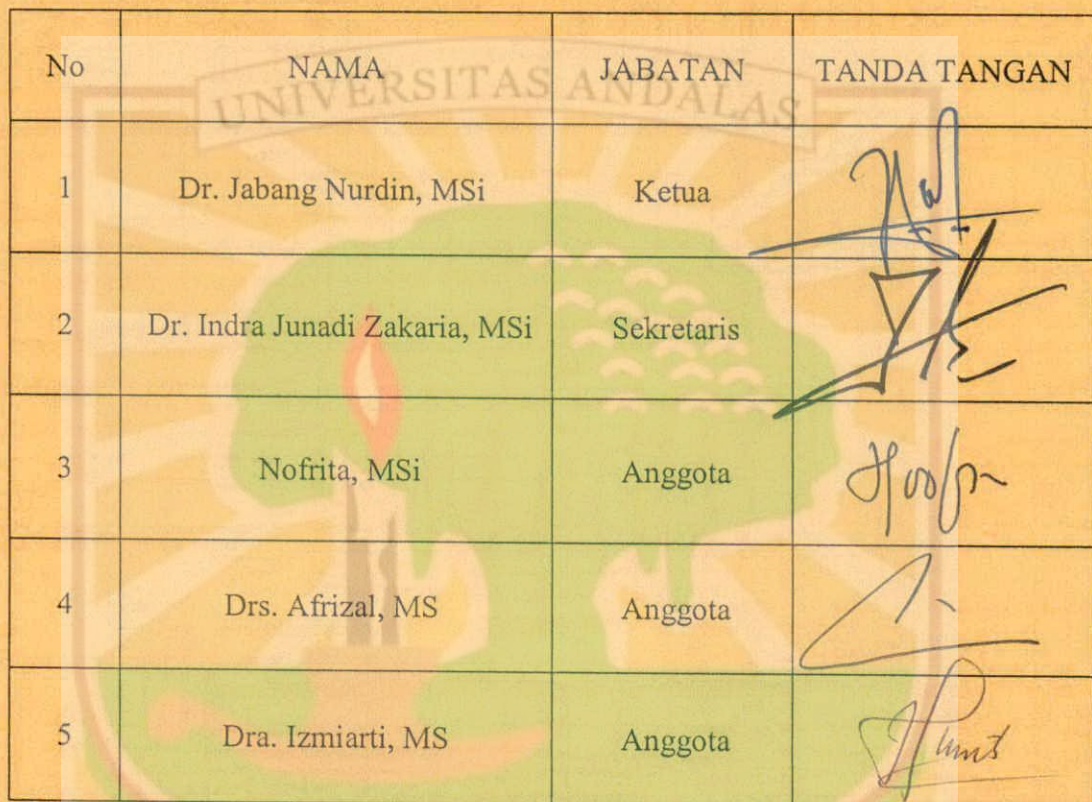 No NAMA JABATAN TANDA TANGAN
UNIVERSITAS ANDALAS
1 Dr. Jabang Nurdin, MSi Ketua
2 Dr. Indra Junadi Zakaria, MSi Sekretaris
3 Nofrita, MSi Anggota
4 Drs. Afrizal, MS Anggota
5 Dra. Izmiarti, MS Anggota